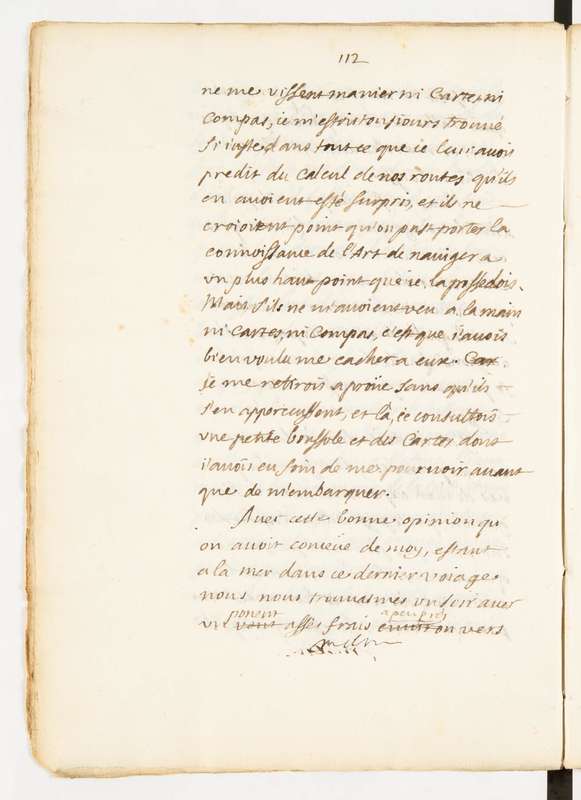 112
ne me vissent manier ni Cartes, ni
Compas, ie m'estois tousiours trouué
si iuste dans tout ce que ie leur auois
predit du Calcul de nos routes qu'ils
en auoient esté surpris, et ils ne
croioient point qu'on pust porter la
connoissance de l'Art de nauiger a
vn plus haut point que ie la possedois.
Mais s'ils ne m'auoient veu a la main
ni Cartes, ni Compas, c'est que i'auois
bien voulu me cacher a eux. Car
je me retirois a proüe sans qu'ils
s'en apperceussent, et là, ie consultois
vne petite boussole et des Cartes dont
i'auois eu soin de me pouruoir auant
que de m'embarquer.
Auec cette bonne opinion qu
on auoit conceüe de moy, estant
a la mer dans ce dernier voiage
nous nous trouuasmes vn soir auec
ponent a peu près
vn vent assés frais enuiron vers